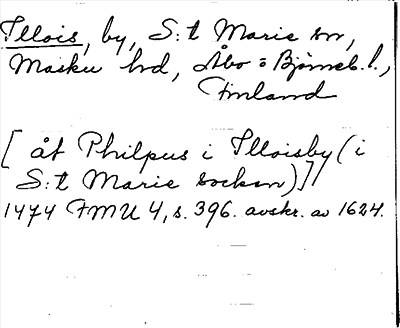 Illois, by, S:t Marie sn,
Masku hd, Åbo o Björneb. l.,
Finland
[åt Philpus i Illoisby (i
S:t Marie socken)]
1474 FMU 4, s. 396. avskr. av 1624.